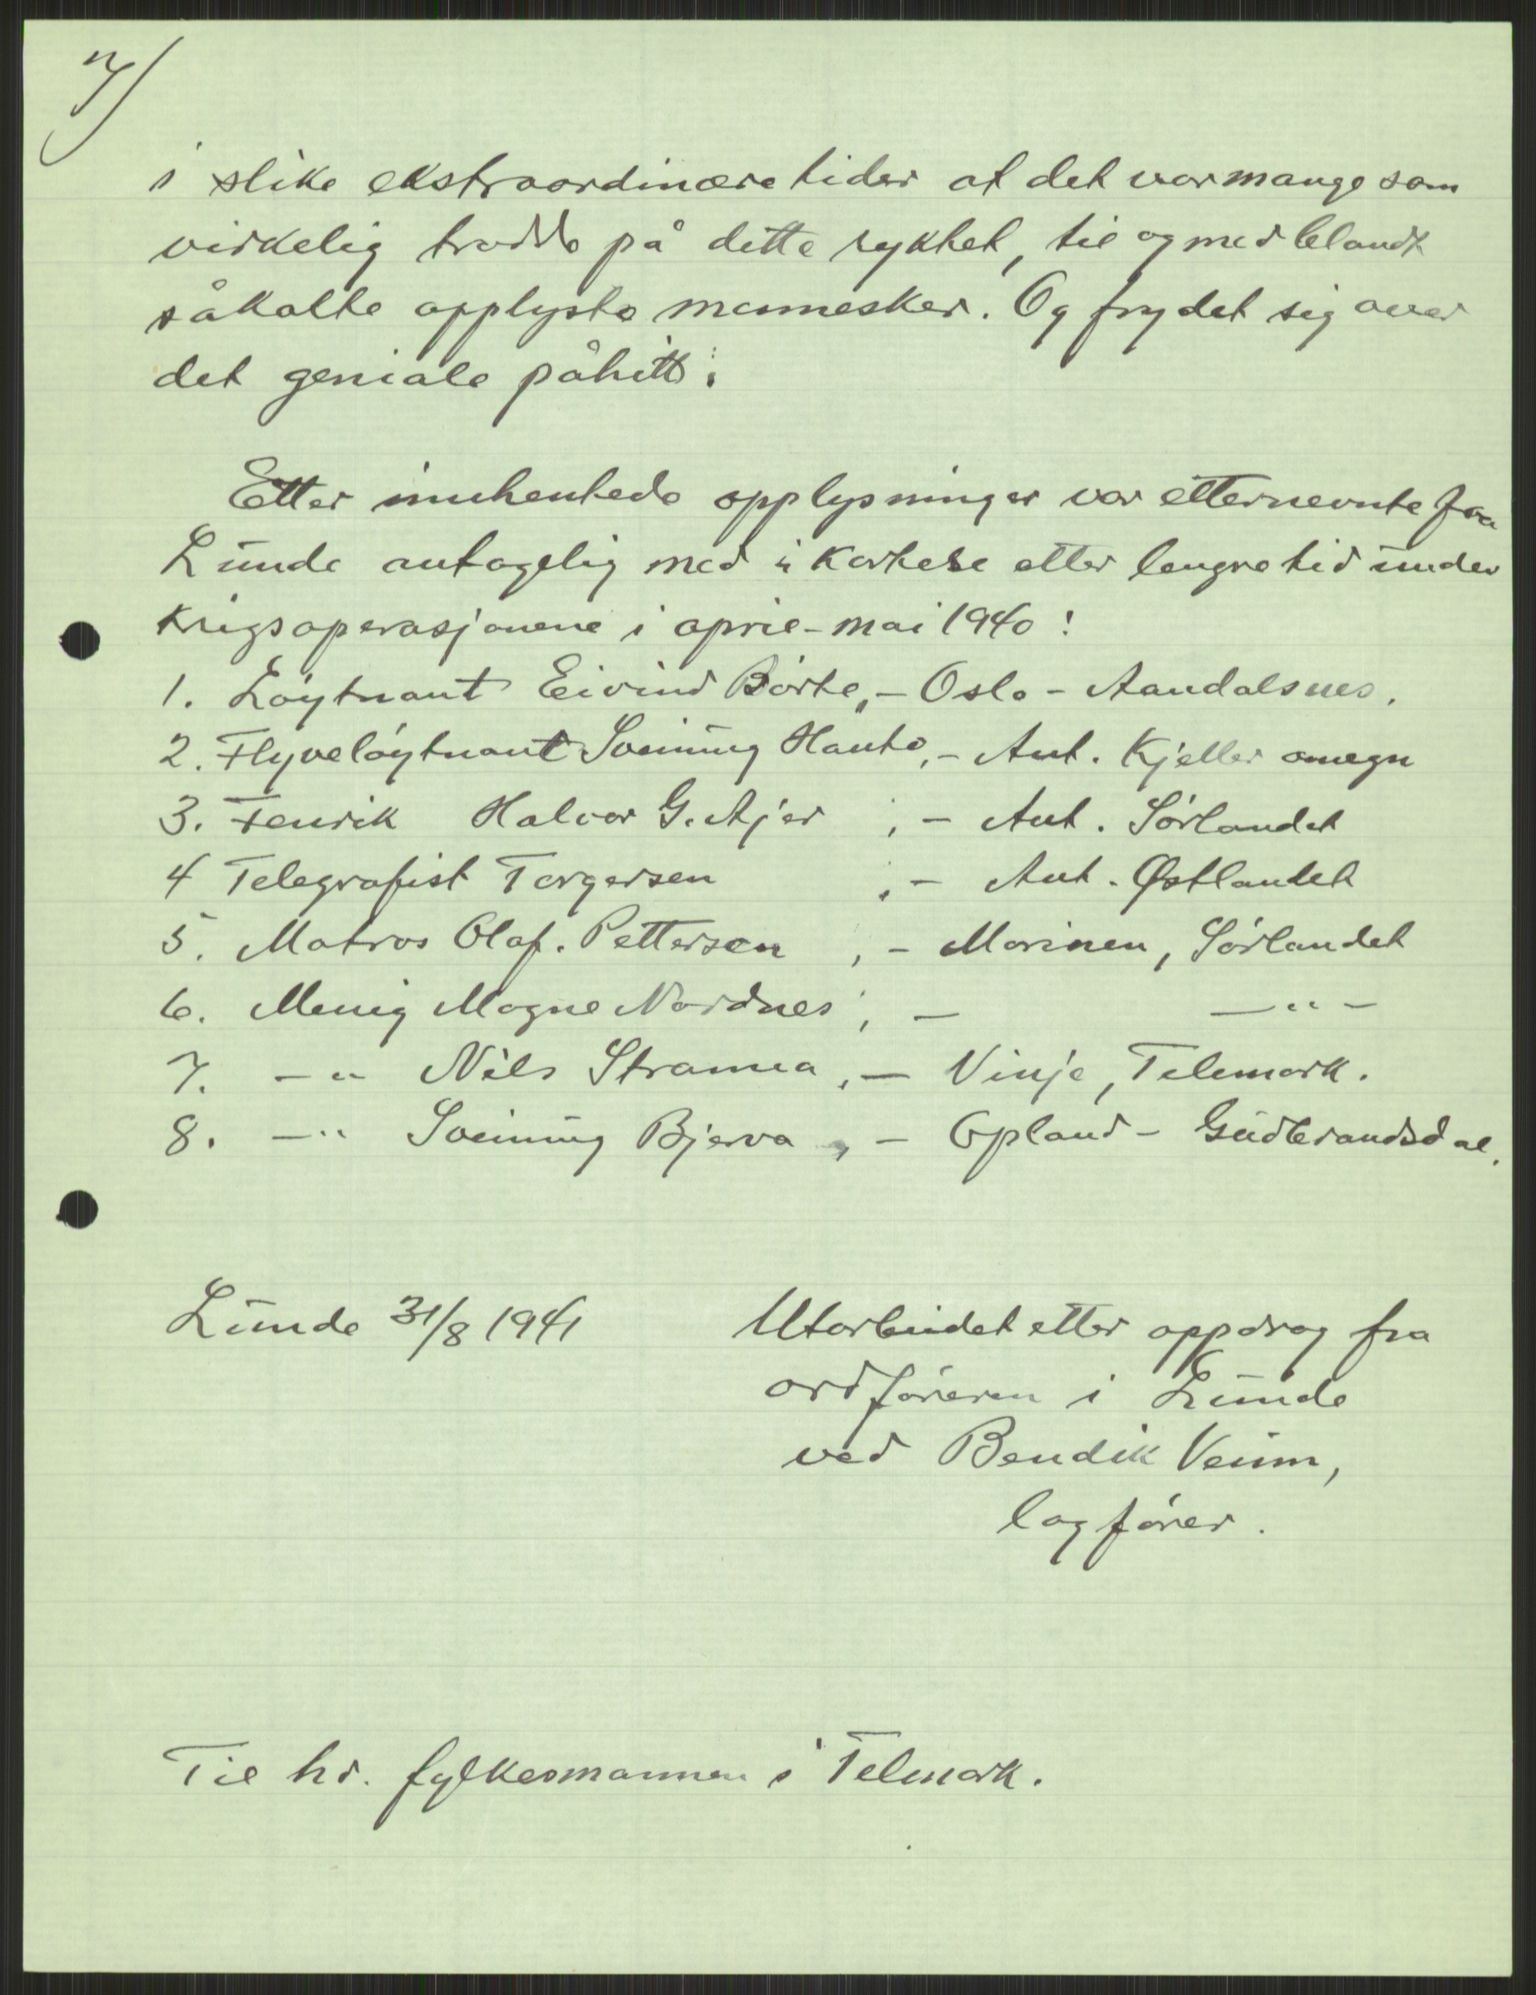 7/
i slike ekstraordinære tider at det var mange som
virkelig trodde på dette ryktet, til og med blandt
såkalte opplyste mennesker. Og frydet sig over
det geniale påhitt!
Etter innhentede opplysninger var etternevnte fra
Lunde antagelig med i kortere eller lengre tid under
krigsoperasjonene i april-mai 1940:
1. Løytnant Eivind Børte, - Oslo - Aandalsnes.
2. Flyveløytnant Sveinung Hauto, - Ant. Kjeller omegn
3. Fenrik Halvor G. Ajer, - Ant. Sørlandet
4 Telegrafist Torgersen, - Ant. Østlandet
5. Matros Olaf. Pettersen, - Marinen, Sørlandet
6. Menig Magne Nordnes, - -"-
7. -"- Nils Stranna, - Vinje, Telemark.
8. -"- Sveinung Bjerva, - Opland - Gudbrandsdal.
Lunde 31/8 1941
Utarbeidet etter oppdrag fra
ordføreren i Lunde
ved Bendik Veum,
lagfører.
Til hr. fylkesmannen i Telmark.